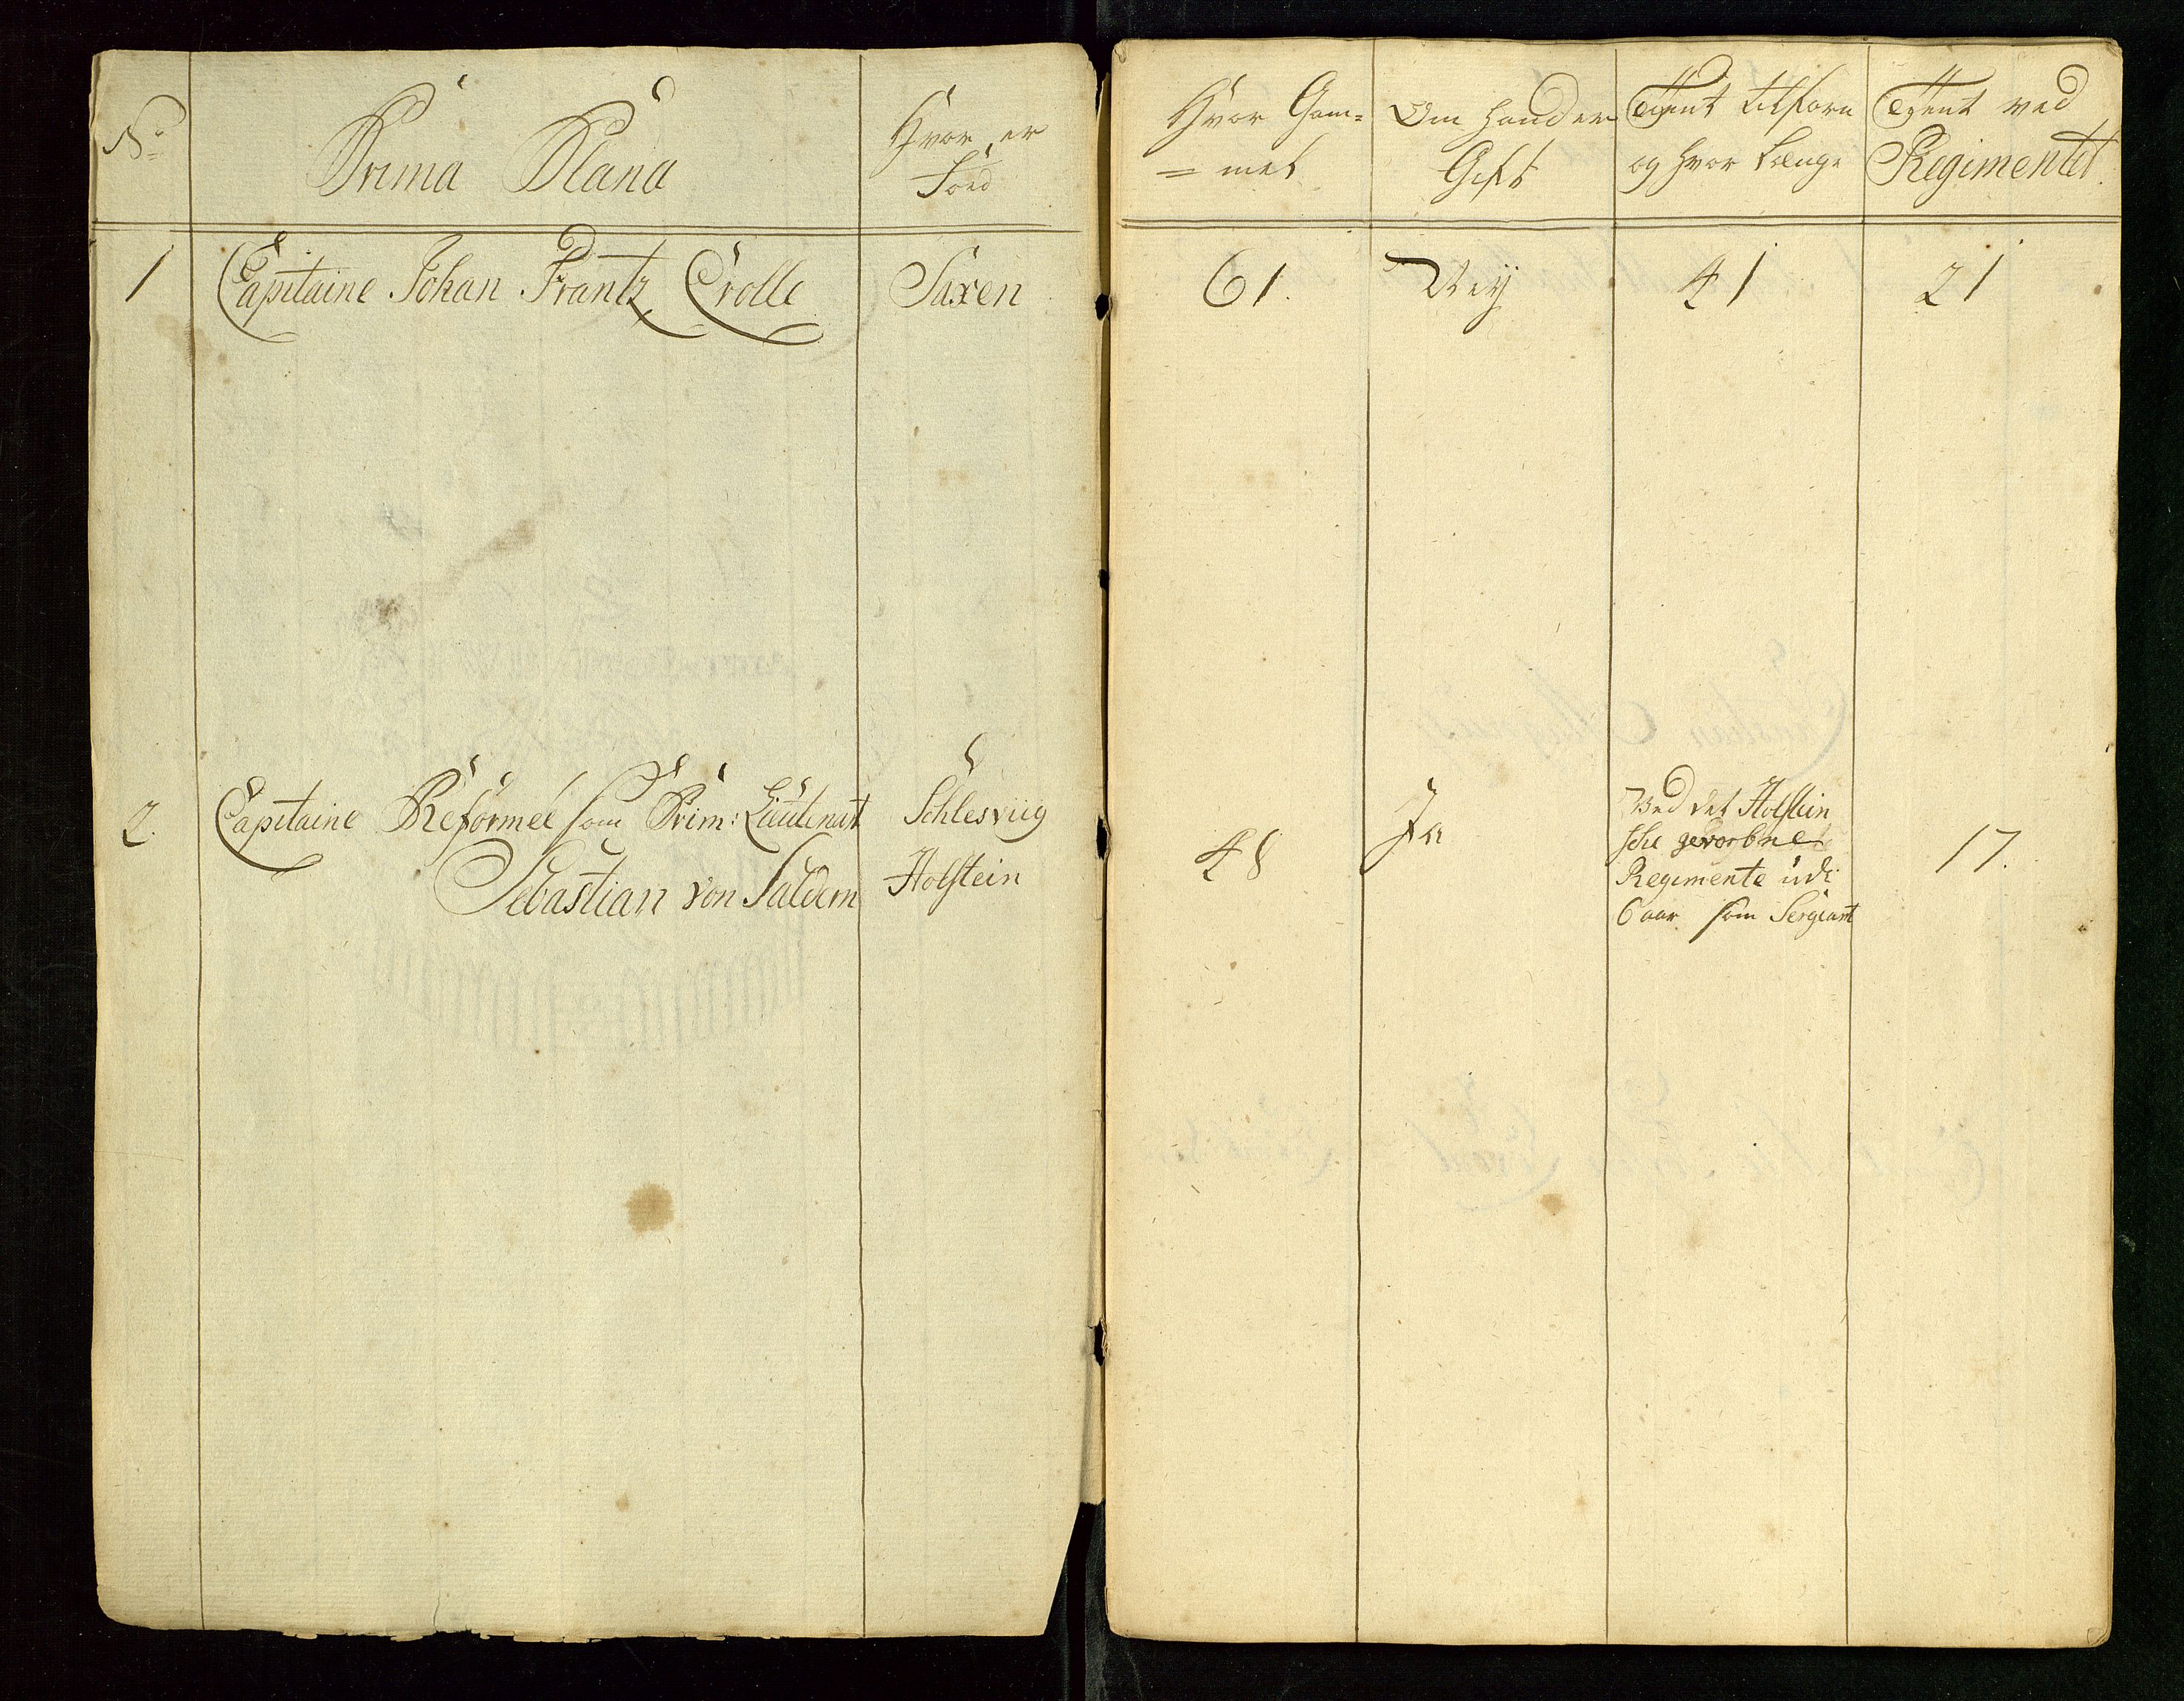 No
Prima Plana
Hvor er
Föed
Hvor Gam=
=mel
Om hand er
Gift
Tient tilforn
og hvor længe
Tient ved
Regimentet.
1 Capitaine Johan Frantz Crolle Saxen 61. Neÿ 41 21
2. Capitaine Reformeé som Prim: Lieutenant Schlesviig
Sebastian von Saldern Holstein
48 Ja
Ved det Holstein
sche gevorbne
Regimente udi
6 aar som Sergiant
17.